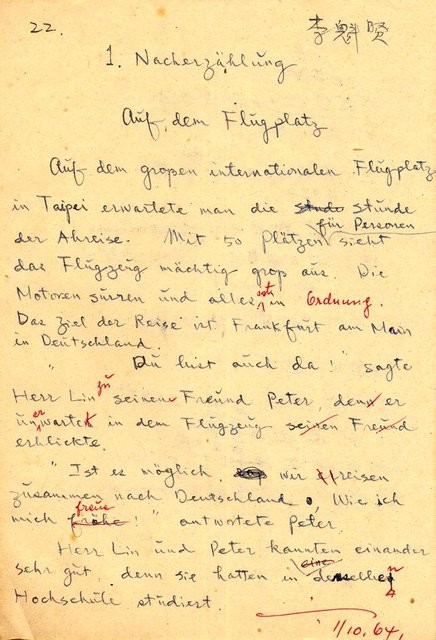 22. 李魁贤
1. Nacherzählung
Auf dem Flugplatz
Auf dem großen internationalen Flugplatz
in Taipei erwartete man die Stunde
für Personen
der Abreise. Mit 50 Plätzen sieht
das Flugzeug mächtig groß aus. Die
Motoren surren und alles ist in Ordnung.
Das Ziel der Reise ist Frankfurt am Main
in Deutschland.
" Du bist auch da! " sagte
zu
Herr Lin seinem Freund Peter, denn er
er
unwartet in dem Flugzeug seinen Freund
erblickte.
" Ist es möglich, wir reisen
zusammen nach Deutschland. Wie ich
freue
mich frohe! " antwortete Peter.
Herr Lin und Peter kannten einander
eine
sehr gut, denn sie hatten in derselben
Hochschule studiert.
1/10.64.